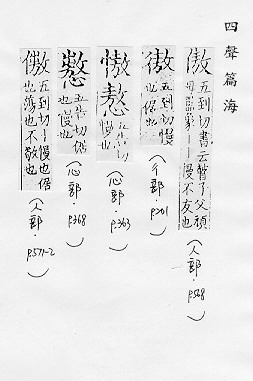 四聲篇海
傲 五到切書云瞽子父頑
母嚚象丨丨慢不友也
(人部.p.568)
五到切慢
也倨也
(彳部.p.201)
慠
五告切
慢也
(心部.p.363)
五告切倨
也慢也
(心部.p.368)
五到切丨慢也倨
也蕩也不敬也
(人部.p.571-2)